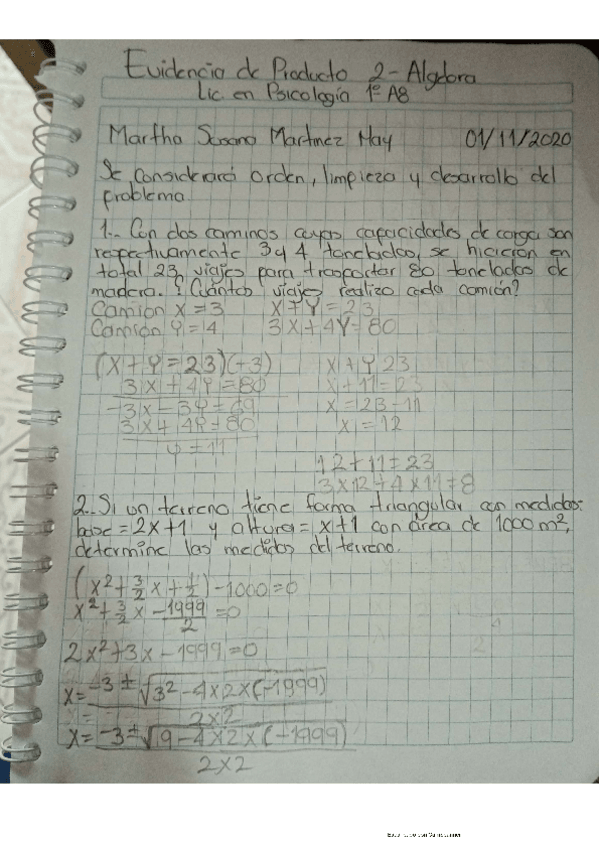 Evidencia de Producto 2- Algebra
Lic. en Psicología 1º A8
Martha Susana Martinez Hay 01/11/2020
Se considerará orden, limpieza y desarrollo del
problema
1.- Con dos camiones cuyas capacidades de carga son
respectivamente 3 y 4 toneladas, se hicieron en
total 23 viajes para trasportar 80 toneladas de
madera. ¿Cuántos viajes realizo cada camión?
Camion X = 3 X + Y = 23
Camión Y = 4 3X + 4Y = 80
(X + Y = 23)(-3) X + Y 23
3X + 4Y = 80 X + 11 = 23
-3X - 3Y = 69 X = 23 - 11
3X + 4Y = 80 X = 12
Y = 11
12 + 11 = 23
3 x 12 + 4 x 11 = 8
2.- Si un terreno tiene forma triangular con medidas:
base = 2x+1 y altura = x+1 con área de 1000 m²,
determine las medidas del terreno.
(x² + 3/2 x + 1/2) - 1000 = 0
x² + 3/2 x - 1999/2 = 0
2x² + 3x - 1999 = 0
x = -3 ± √3² - 4x2x(-1999)
2x2
x = -3 ± √9 - 4x2x(-1999)
2x2